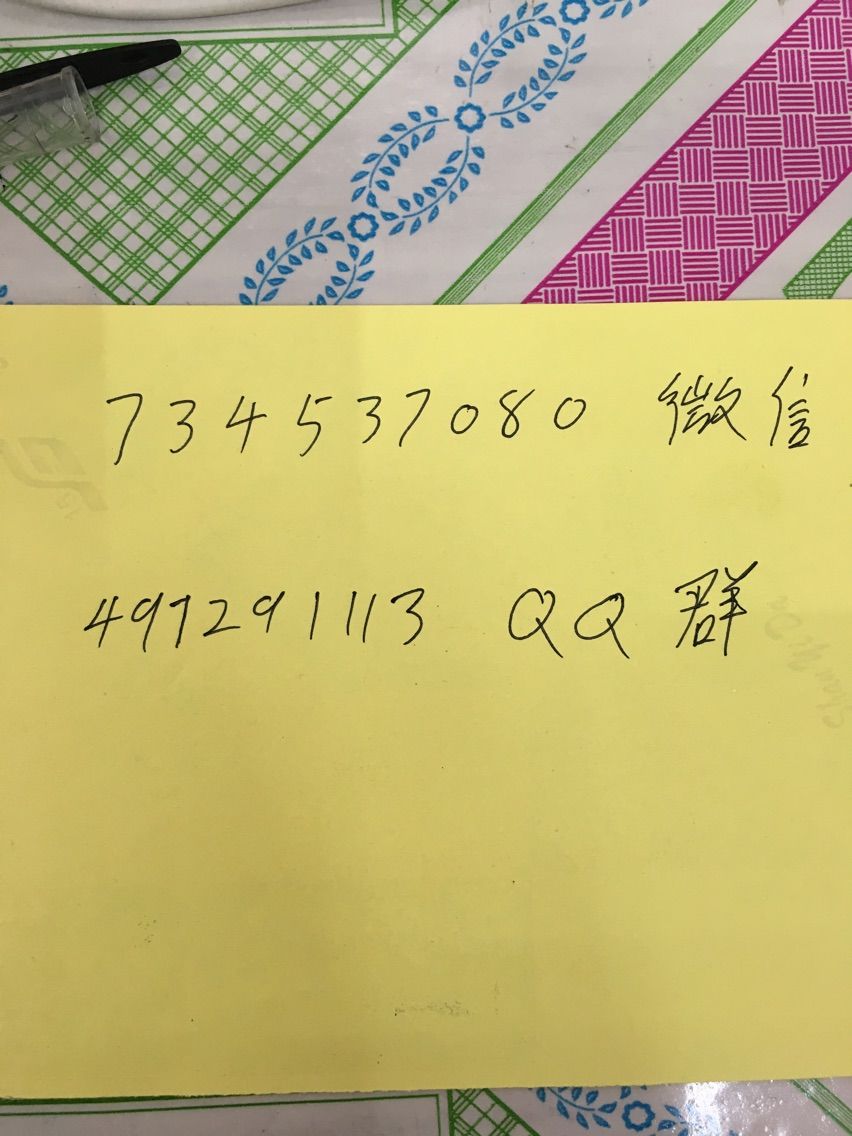 734537080 微信
497291113 QQ群